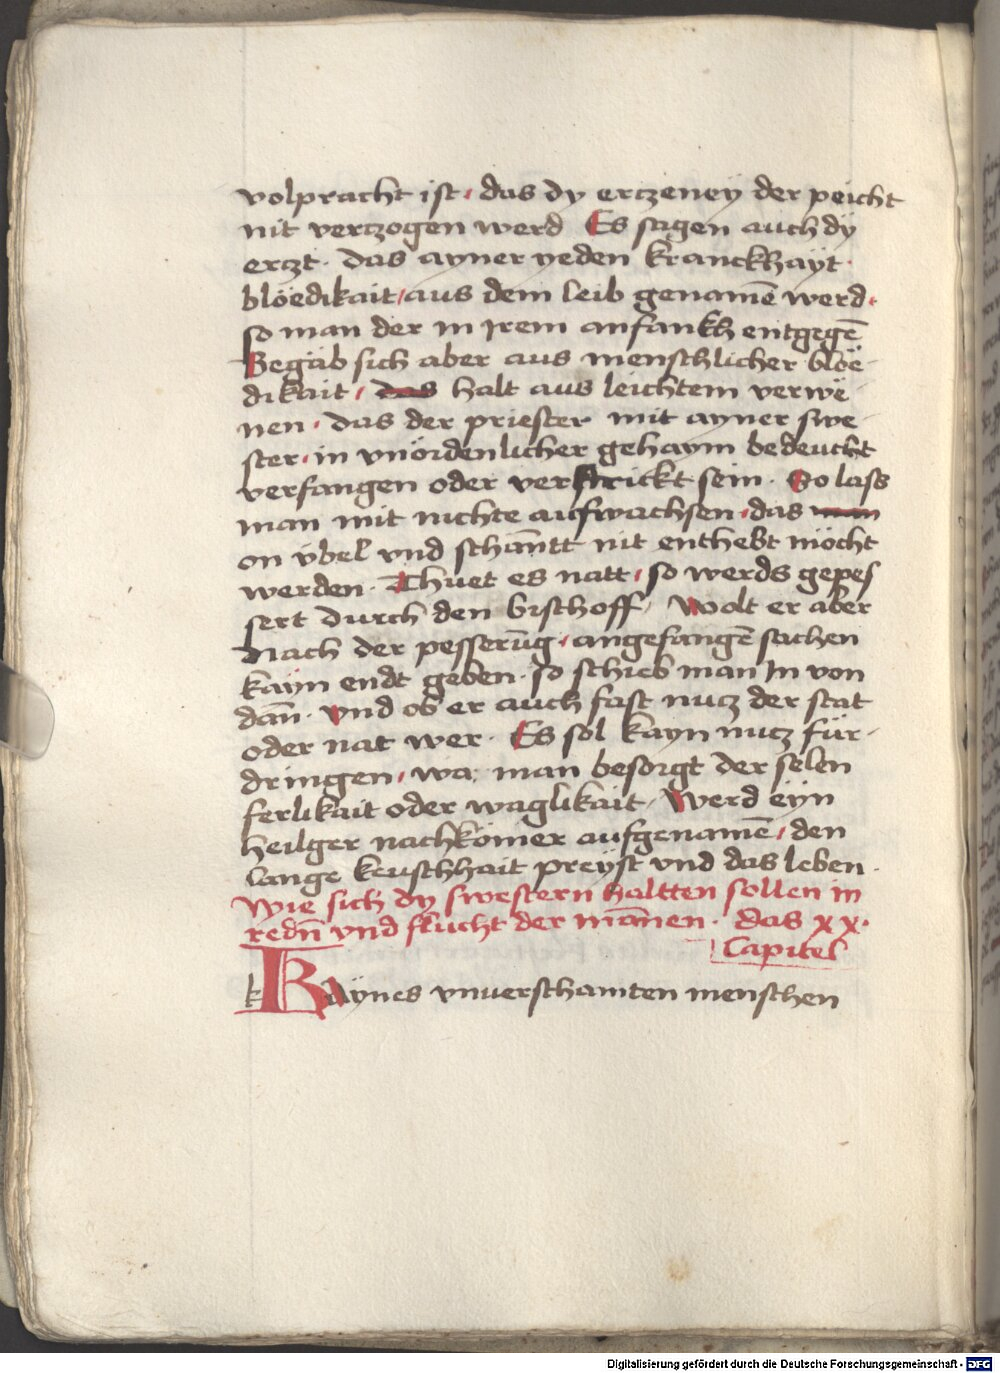 volpracht ist · das dy erczeneÿ der peicht
nit verczogen werd Es sagen auch dÿ
erczt · das ayner yeden kranckhaÿt ·
blöedikait / aus dem leib genamē werd ·
so man der in irem anfankh entgegē
Begäb sich aber aus menschlicher blöe
dikait / das halt aus leichtem verwë
nen · das der priester mit ayner swe
ster · in vnördenlicher gehaym bedeucht
verfangen oder verstrickt sein · So lass
man mit nichte aufwachsen · das man
on v̈bel vnd schāntt nit enthebt möcht
werden · Thuet es natt / so werds gepes
sert durch den bischoff / Wolt er aber
nach der pesserūg · angefangē sachen
kayn endt geben · so schieb man in von
dan̄ · vnd ob er auch fast nucz der stat
oder nat wer · Es sol kayn nucz für
dringen / wa man besorgt der selen
ferlikait oder waglikait / Werd eÿn
heilger nachkömer aufgenamē / den
lange keuschhait preÿst vnd das leben ·
Wie sich dy swestern haltten sollen in
redn̄ vnd flucht der man̄en · das xx ·
Capitel
k Kaÿnes vnuerschamten menschen
Digitalisierung gefördert durch die Deutsche Forschungsgemeinschaft - DFG